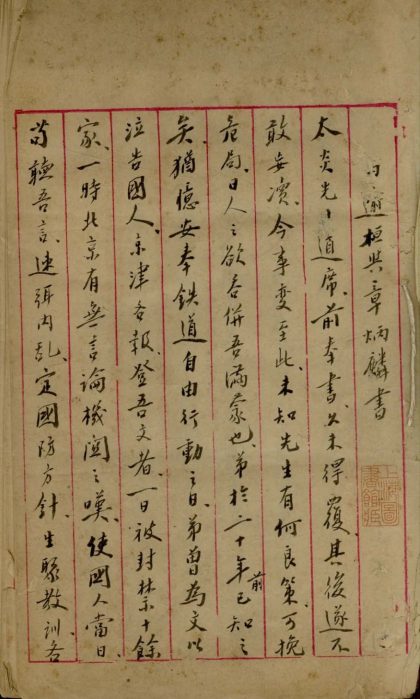 白逾桓與章炳麟書
太炎先生道席、前奉書、久未得覆、其後遂不
敢妄瀆、今事變至此、未知先生有何良策可挽
危局、日人之欲吞併吾滿蒙也、弟於二十年前已知之
矣、猶憶安奉鉄道自由行動之日、弟曾為文以
泣告國人、京津各報、登吾文者、一日被封禁十餘
家、一時北京有無言論機関之嘆、使國人當日、
苟聽吾言、速弭內乱、定國防方針、生聚教訓、吾
上海圖
書館藏